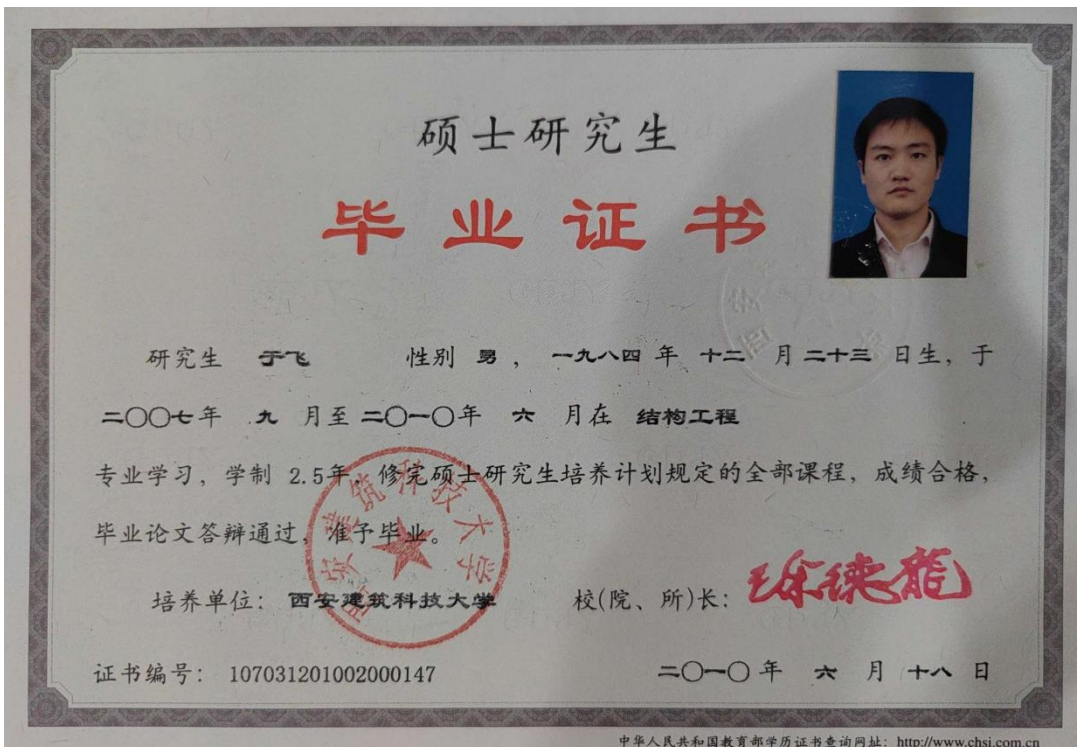 硕士研究生
毕业证书
研究生 于飞 性别 男， 一九八四 年 十二 月 二十三 日生，于
二〇〇七年 九 月至 二〇一〇年 六 月在 结构工程
专业学习，学制 2.5年，修完硕士研究生培养计划规定的全部课程，成绩合格，
毕业论文答辩通过，准予毕业。
西安建筑科技大学
培养单位：西安建筑科技大学 校(院、所)长：徐德龙
证书编号：107031201002000147 二〇一〇 年 六 月 十八 日
中华人民共和国教育部学历证书查询网址：http://www.chsi.com.cn